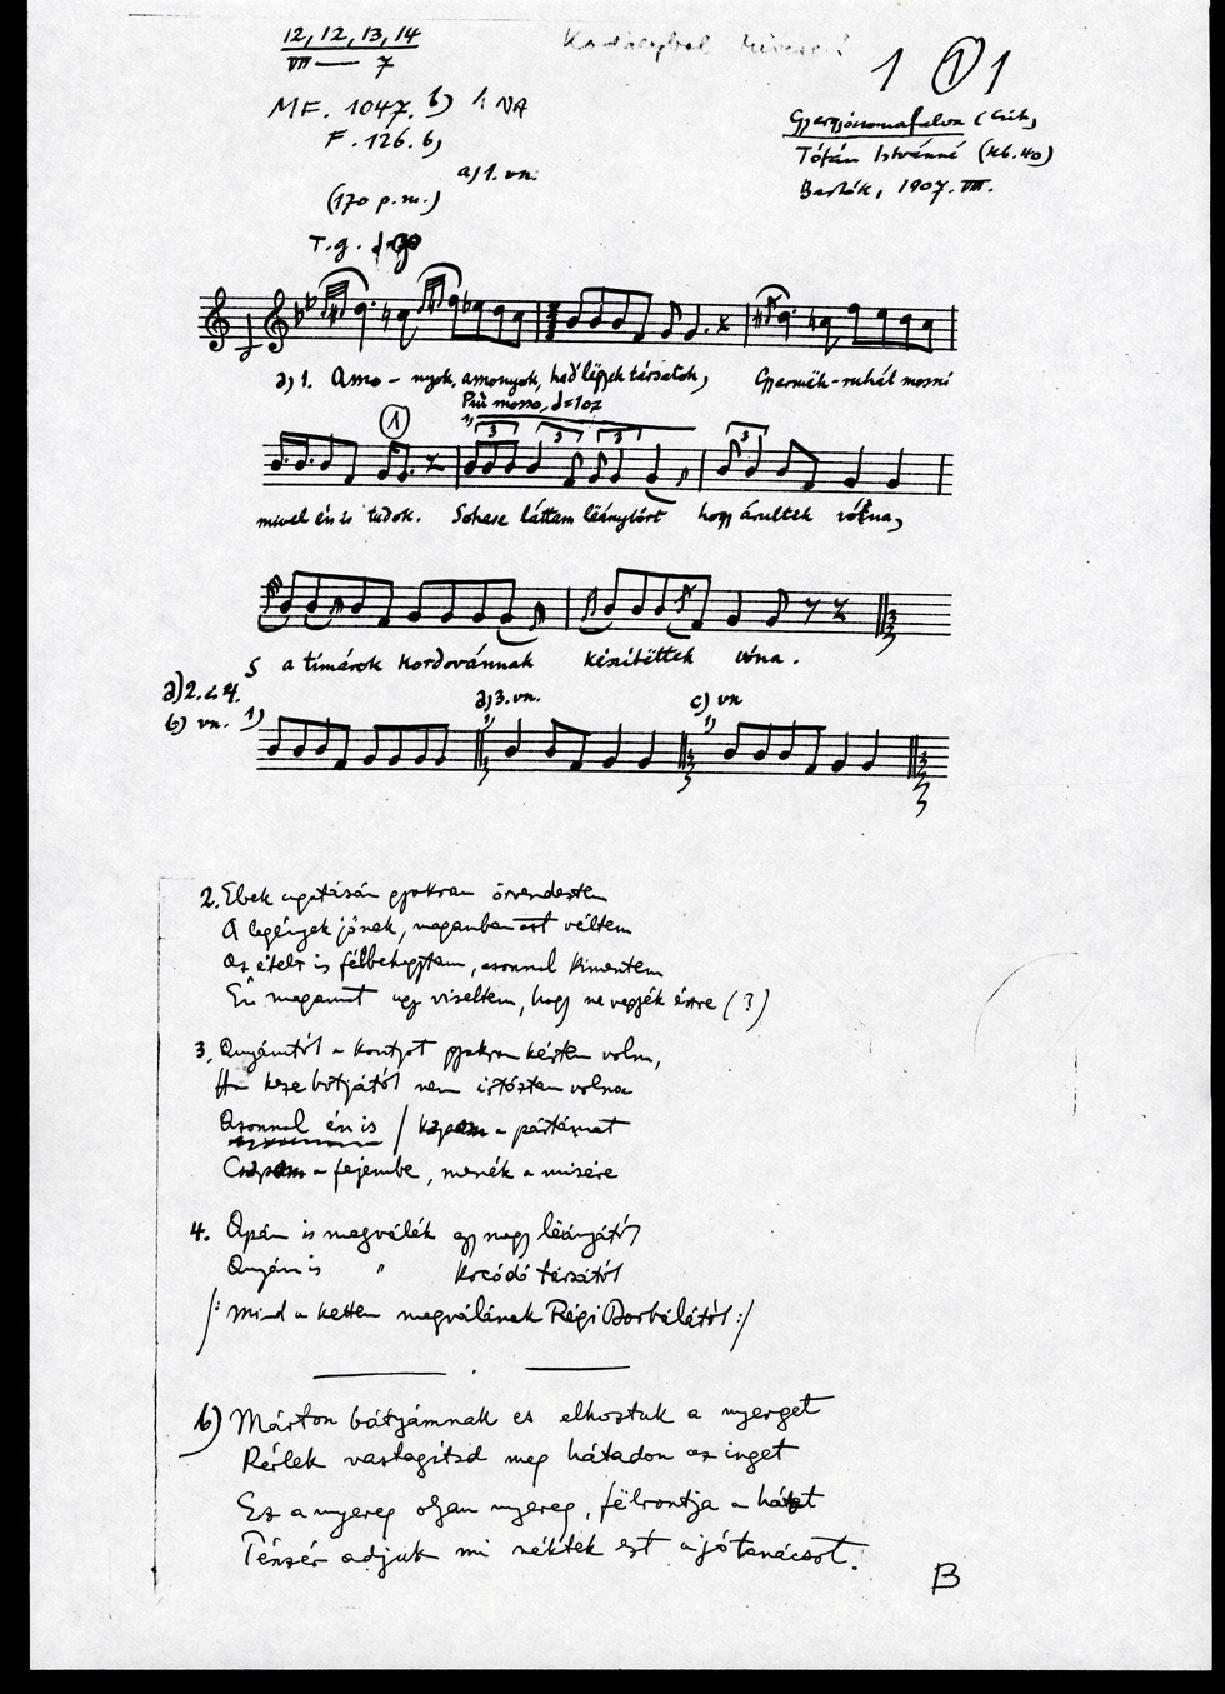 12, 12, 13, 14
VII — 7
1 1 1
MF. 1047. b) 1. NA
F. 126. b)
a) 1. vn.
(170 p.m.)
T.g.
(Csík)
Tófán Istvánné (kb. 40)
Bartók, 1907. VII.
a) 1. Amo - nyok, amonyok, hadlépjek társatok,
Gyermëk-ruhát mosni
Più mosso,
1
1) 3 3 3 3
mivel én is tudok. Sohase láttam lëánybőrt hogy árultak vóna,
S a timárok kordovánnak készitëttek vóna.
a) 2. s 4.
b) vn. 1)
a) 3. vn.
1)
c) vn
1)
2. Ebek ugatásán gyakran örvendeztem
A legények jőnek, magamban azt véltem
Az ételt is félbehagytam, azonnal kimentem
Én magamat ugy viseltem, hogy ne vegyék észre (?)
3. Anyámtól a kontyot gyakran kértem volna,
Ha keze botjától nem irtóztam volna
Azonnal én is / kapám a pártámat
Csapám a fejembe, menék a misére
4. Apám is megválék egy nagy lëányától
Anyám is " kocódó társától
/: Mind a ketten megválának Régi Borbálától :/
b) Márton bátyámnak es elhoztuk a nyerget
Kérlek vastagitsd meg hátadon az inget
Ez a nyereg olyan nyereg, fëlrontja a hátat
Ténsër adjuk mi néktëk ezt a jó tanácsot.
B